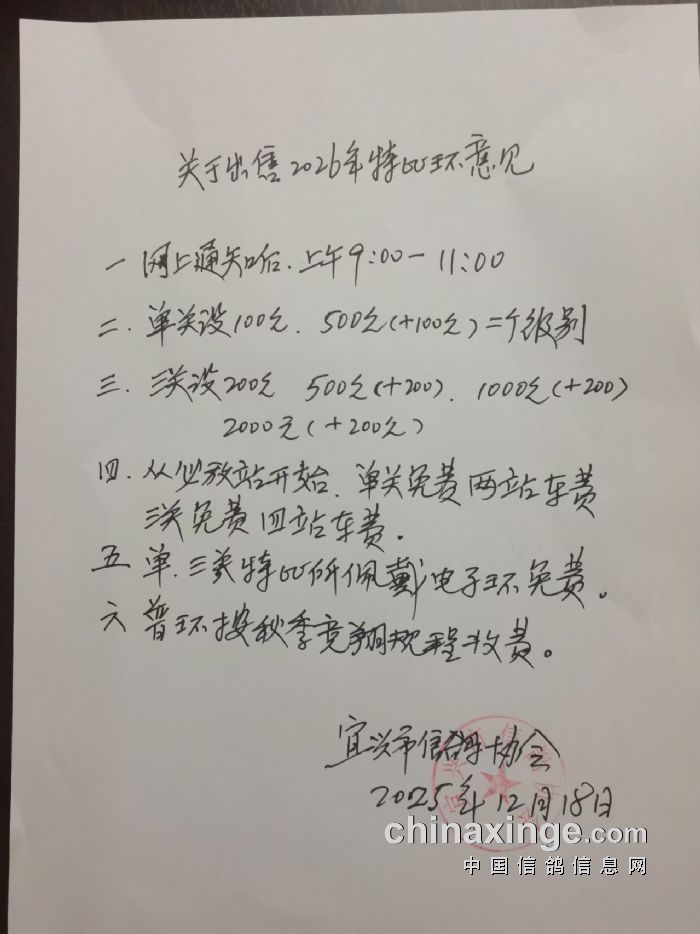 关于出售2026年特比环意见
一 网上通知后.上午9:00-11:00
二.单关设100元.500元(+100元)二个级别
三.三关设200元 500元(+200).1000元(+200)
2000元(+200元)
四.从必放站开始.单关免费两站车费
三关免费四站车费。
五 单.三关特比所佩戴电子环免费。
六 普环按秋季竞翔规程收费。
宜兴市信鸽协会
2025年12月18日
chinaxinge.com
中国信鸽信息网